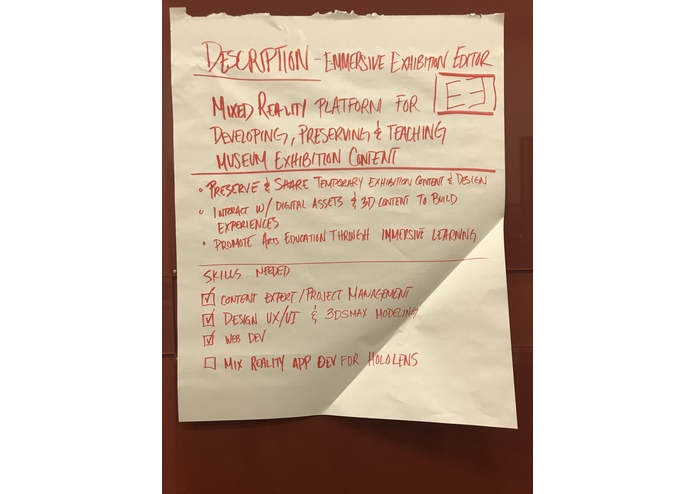 DESCRIPTION - EMMERSIVE EXHIBITION EDITOR
E3
MIXED REALITY PLATFORM FOR
DEVELOPING, PRESERVING & TEACHING
MUSEUM EXHIBITION CONTENT
• PRESERVE & SHARE TEMPORARY EXHIBITION CONTENT & DESIGN
• INTERACT W/ DIGITAL ASSETS & 3D CONTENT TO BUILD
EXPERIENCES
• PROMOTE ARTS EDUCATION THROUGH IMMERSIVE LEARNING
SKILLS NEEDED
☑ CONTENT EXPERT/PROJECT MANAGEMENT
☑ DESIGN UX/UI & 3DSMAX MODELING
☑ WEB DEV
☐ MIX REALITY APP DEV FOR HOLOLENS